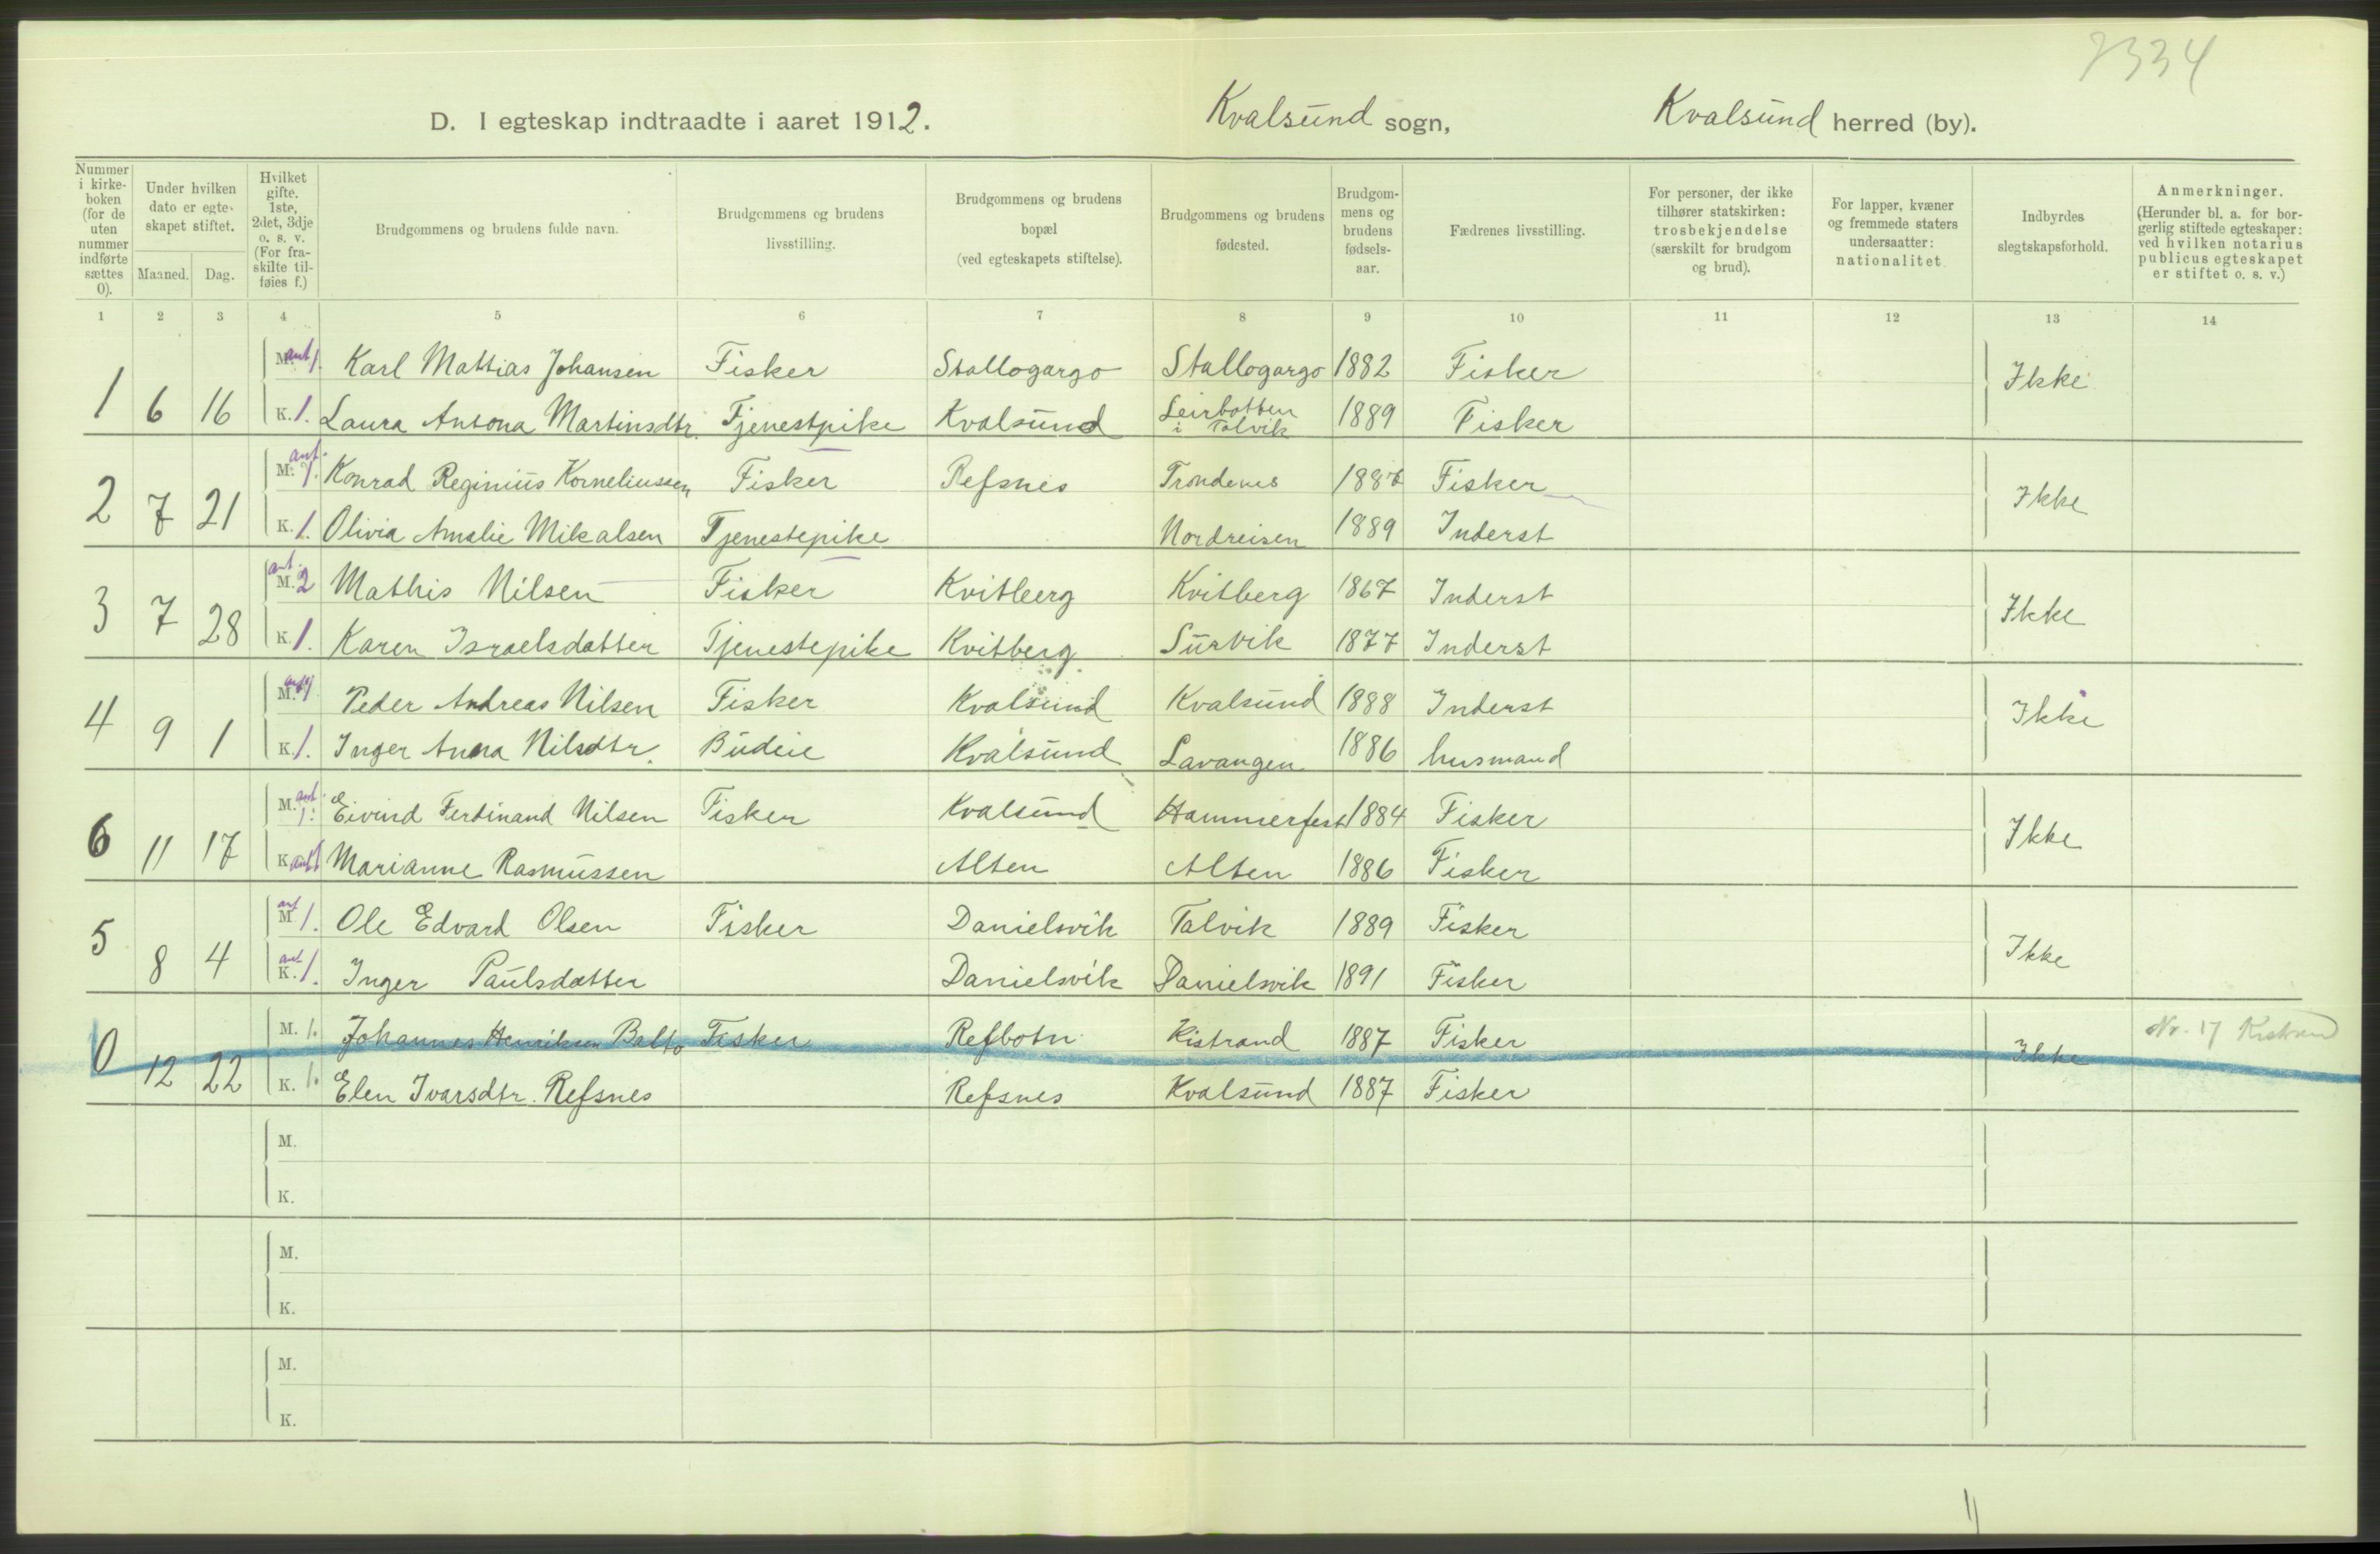 7334
D. I egteskap indtraadte i aaret 1912. Kvalsund sogn, Kvalsund herred (by).
Nummer i kirke-boken (for de uten nummer indførte sættes 0).
Under hvilken dato er egte-skapet stiftet.
Maaned. Dag.
Hvilket gifte. 1ste, 2det, 3dje o. s. v. (For fra-skilte til-føies f.)
Brudgommens og brudens fulde navn.
Brudgommens og brudens livsstilling.
Brudgommens og brudens bopæl (ved egteskapets stiftelse).
Brudgommens og brudens fødested.
Brudgom-mens og brudens fødsels-aar.
Fædrenes livsstilling.
For personer, der ikke tilhører statskirken: trosbekjendelse (særskilt for brudgom og brud).
For lapper, kvæner og fremmede staters undersaatter: nationalitet.
Indbyrdes slegtskapsforhold.
Anmerkninger. (Herunder bl. a. for bor-gerlig stiftede egteskaper: ved hvilken notarius publicus egteskapet er stiftet o. s. v.)
1 2 3 4 5 6 7 8 9 10 11 12 13 14
M. ant 1. Karl Mattias Johansen Fisker Stallogargo Stallogargo 1882 Fisker
1 6 16 K. 1. Laura Antona Martinsdtr. Tjenestpike Kvalsund Leirbotten i Talvik 1889 Fisker Ikke
M. ant. 1. Konrad Reginius Korneliussen Fisker Refsnes Trondenes 1887 Fisker
2 7 21 K. 1. Olivia Amalie Mikalsen Tjenestepike Nordreisen 1889 Inderst Ikke
M. ant. 2 Mathis Nilsen Fisker Kvitberg Kvitberg 1867 Inderst
3 7 28 K. 1. Karen Israelsdatter Tjenestepike Kvitberg Survik 1877 Inderst Ikke
M. ant 1 Peder Andreas Nilsen Fisker Kvalsund Kvalsund 1888 Inderst
4 9 1 K. 1. Inger Anna Nilsdtr. Budeie Kvalsund Lavangen 1886 husmand Ikke
M. ant. 1. Eivind Ferdinand Nilsen Fisker Kvalsund Hammerfest 1884 Fisker
6 11 17 K. ant 1 Marianne Rasmussen Alten Alten 1886 Fisker Ikke
M. ant 1. Ole Edvard Olsen Fisker Danielsvik Talvik 1889 Fisker
5 8 4 K. ant. 1. Inger Paulsdatter Danielsvik Danielsvik 1891 Fisker Ikke
M. 1. Johannes Henriksen Balto Fisker Refbotn Kistrand 1887 Fisker Nr. 17 Kistrand
0 12 22 K. 1. Elen Ivarsdtr. Refsnes Refsnes Kvalsund 1887 Fisker Ikke
M.
K.
M.
K.
M.
K.